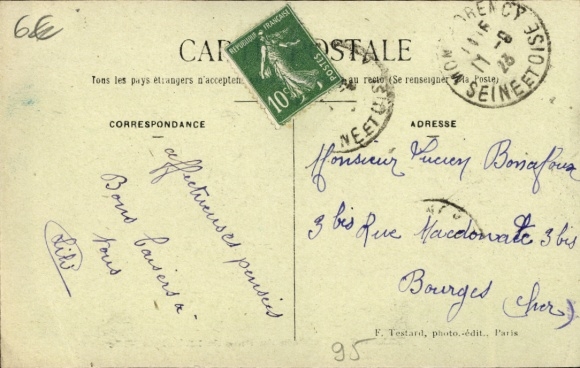 6
CARTE POSTALE
RÉPUBLIQUE FRANÇAISE
POSTES
10c
Tous les pays étrangers n'acceptent au recto (Se renseigner à la Poste)
MONTMORENCY
11 8
23
SEINE ET OISE
NE ET OIS
CORRESPONDANCE
affectueuses pensées
Bons baisers à
tous
Lili
ADRESSE
Monsieur Lucien Bonafoux
3 bis Rue Macdonald 3 bis
Bourges (Cher)
F. Testard, photo.-édit., Paris
95